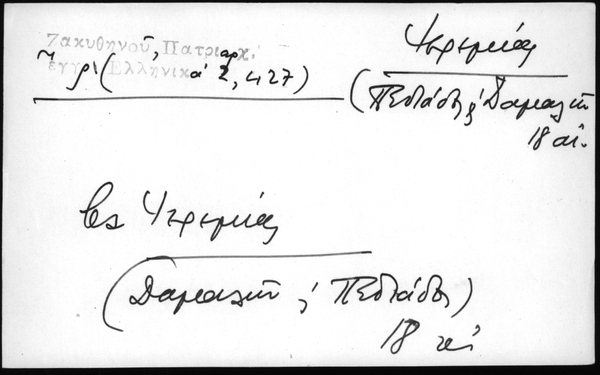 Ζακυθηνοῦ, Πατριαρχ.
ἔγγρ. Ἑλληνικὰ 2, 427)
Ἱερεμίας
(Πεδιάδος & Δαμαλῶν
18 αἰ.
Ἱερεμίας
(Δαμαλῶν & Πεδιάδος)
18 αἰ